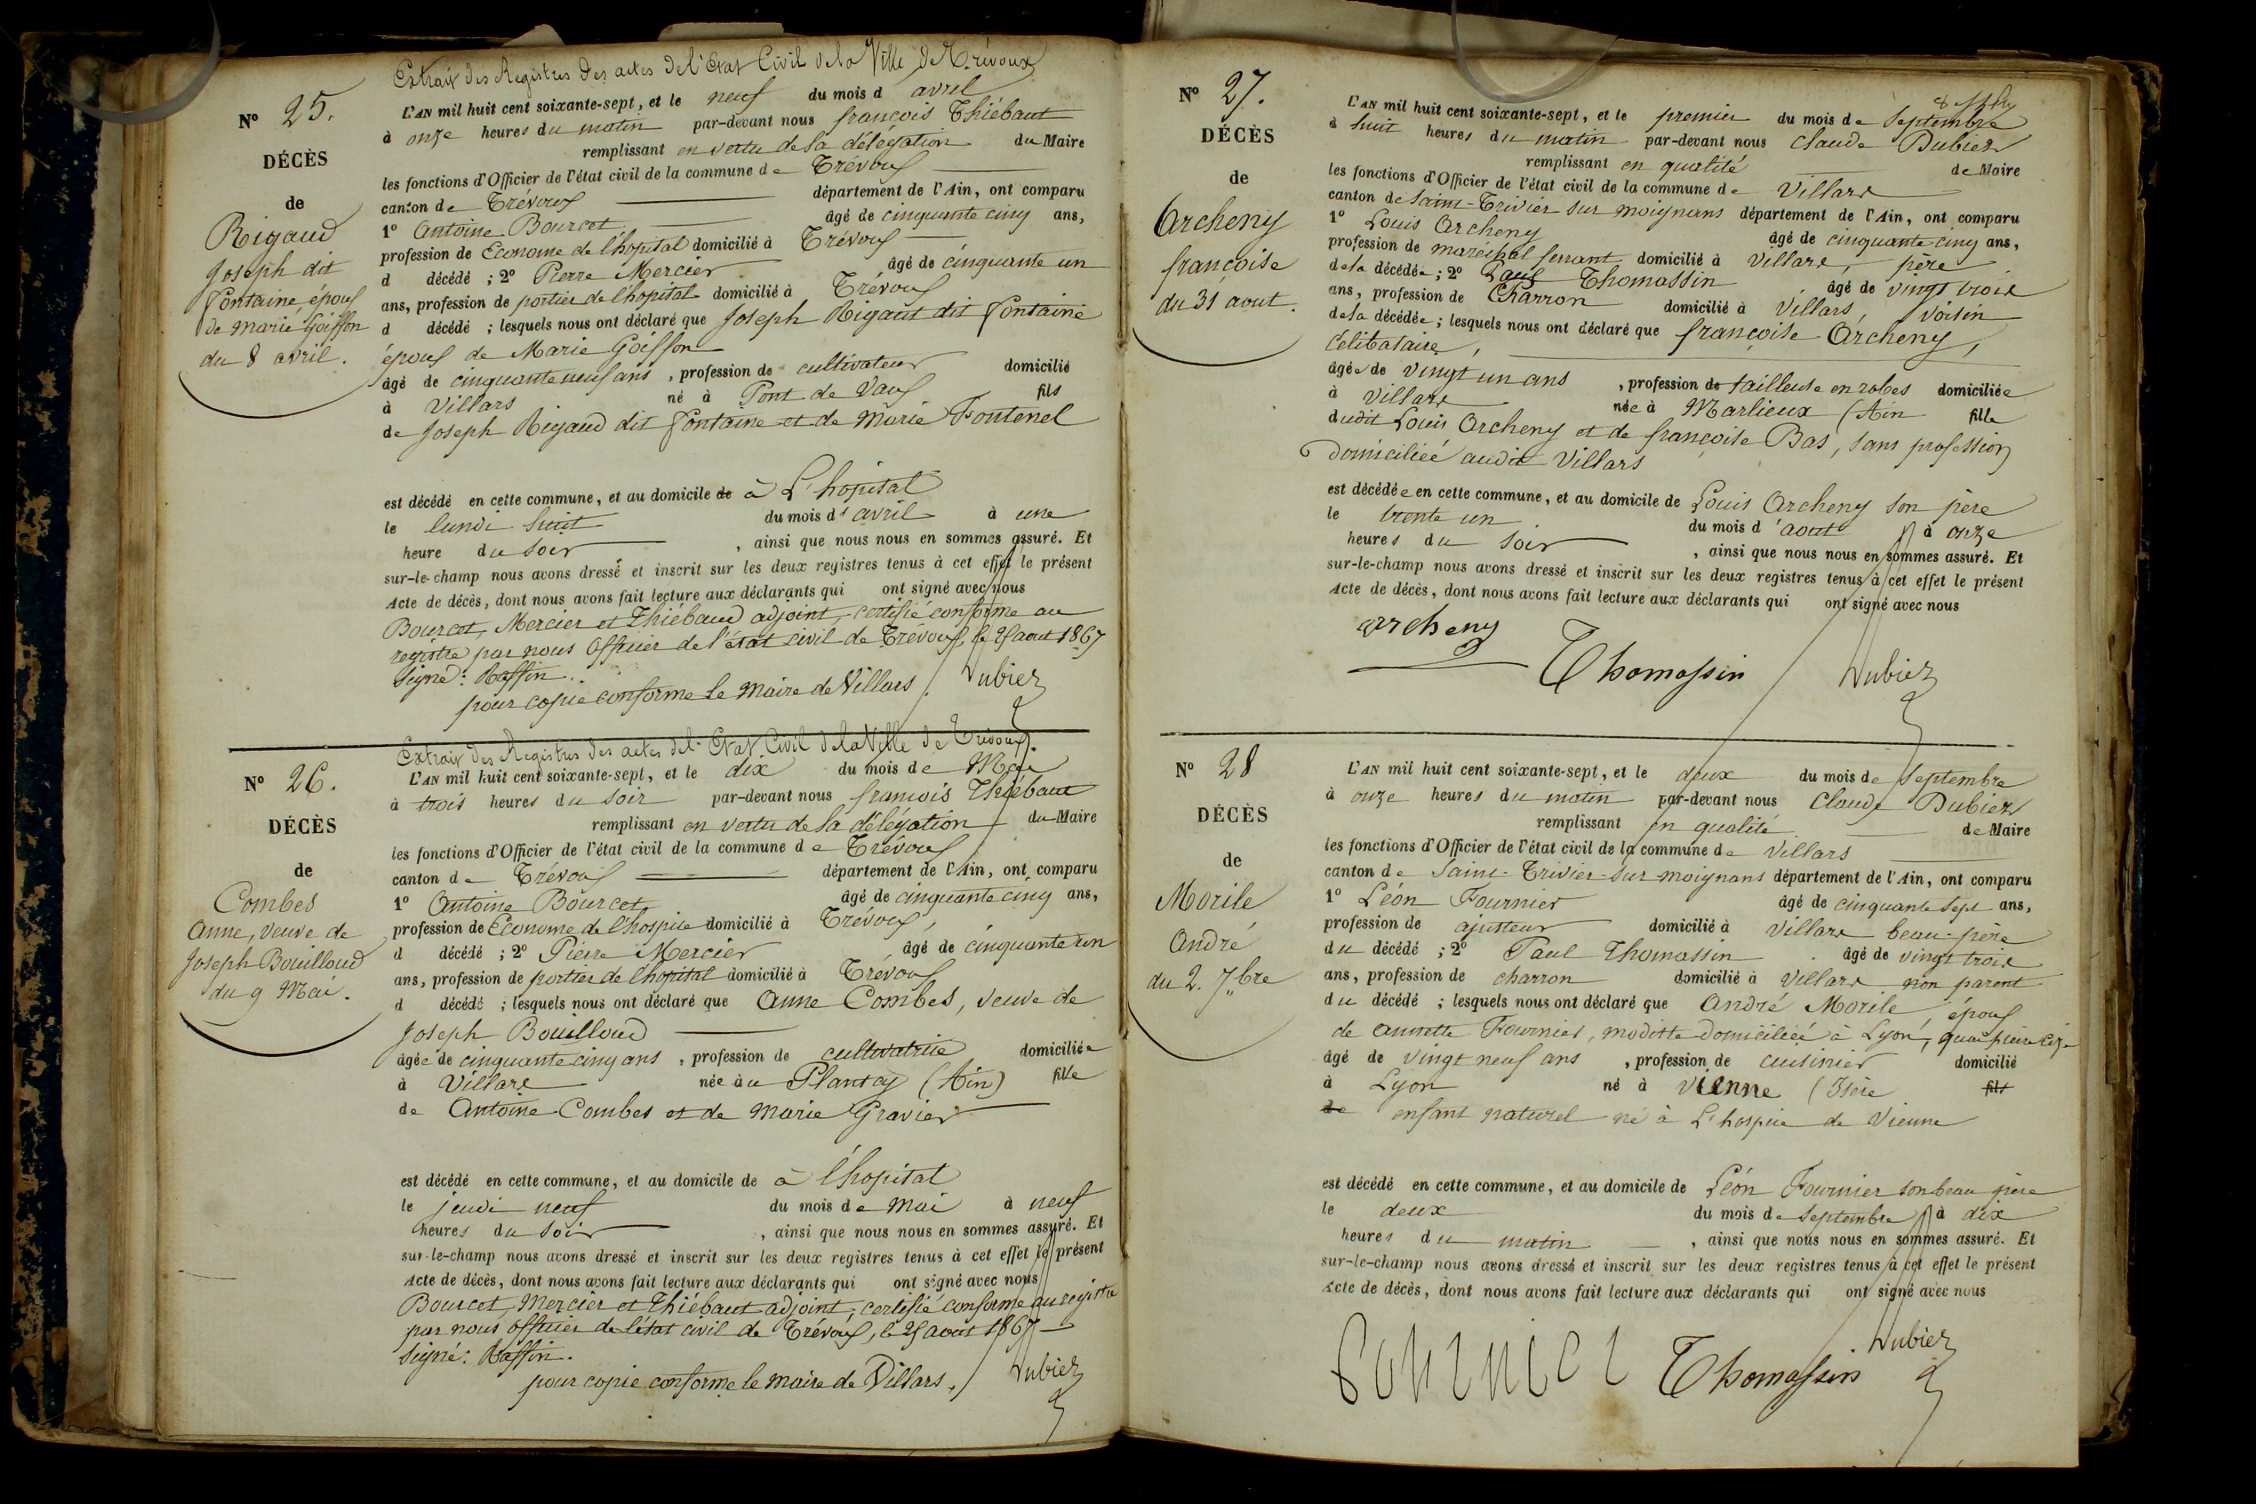 Extrait des Registres des actes de l'Etat Civil de la Ville de Trévoux
N° 25.
DÉCÈS
de
Rigaud
Joseph dit
Fontaine, époux
de marie Goiffon
du 8 avril.
L'AN mil huit cent soixante-sept, et le neuf du mois d avril
à onze heures du matin par-devant nous françois Thiébaut
remplissant en vertu de la délégation du Maire
les fonctions d'Officier de l'état civil de la commune de Trévoux
canton de Trévoux département de l'Ain, ont comparu
1° Antoine Bourcet âgé de cinquante cinq ans,
profession de Econome de l'hopital domicilié à Trévoux
d décédé ; 2° Pierre Mercier âgé de cinquante un
ans, profession de portier de l'hopital domicilié à Trévoux
d décédé ; lesquels nous ont déclaré que Joseph Rigaud dit Fontaine
époux de Marie Goiffon
âgé de cinquante neuf ans, profession de cultivateur domicilié
à Villars né à Pont de Vaux fils
de Joseph Rigaud dit Fontaine et de Marie Fontenel
est décédé en cette commune, et au domicile de à L'hopital
le lundi huit du mois d'avril à une
heure du soir, ainsi que nous nous en sommes assuré. Et
sur-le-champ nous avons dressé et inscrit sur les deux registres tenus à cet effet le présent
Acte de décès, dont nous avons fait lecture aux déclarants qui ont signé avec nous
Bourcet, Mercier et Thiébaud adjoint, certifié conforme au
registre par nous Officier de l'état civil de Trévoux, le 25 aout 1867
Signé: Raffin.
pour copie conforme Le Maire de Villars. Dubiez
Extrait des Registres des actes de l'Etat Civil de la Ville de Trévoux.
N° 26.
DÉCÈS
de
Combes
Anne, veuve de
Joseph Bouilloud
du 9 Mai.
L'AN mil huit cent soixante-sept, et le dix du mois de Mai
à trois heures du soir par-devant nous françois Thiébaut
remplissant en vertu de la délégation du Maire
les fonctions d'Officier de l'état civil de la commune de Trévoux
canton de Trévoux département de l'Ain, ont comparu
1° Antoine Bourcet âgé de cinquante cinq ans,
profession de Econome de l'hospice domicilié à Trévoux,
d décédé ; 2° Pierre Mercier âgé de cinquante un
ans, profession de portier de l'hopital domicilié à Trévoux
d décédé ; lesquels nous ont déclaré que Anne Combes, veuve de
Joseph Bouilloud
âgée de cinquante cinq ans, profession de cultivatrice domiciliée
à Villars née au Plantay (Ain) fille
de Antoine Combes et de Marie Gravier
est décédé en cette commune, et au domicile de à l'hopital
le jeudi neuf du mois de Mai à neuf
heures du soir, ainsi que nous nous en sommes assuré. Et
sur-le-champ nous avons dressé et inscrit sur les deux registres tenus à cet effet le présent
Acte de décès, dont nous avons fait lecture aux déclarants qui ont signé avec nous
Bourcet, Mercier et Thiébaut adjoint, certifié conforme au registre
par nous officier de l'état civil de Trévoux, le 25 aout 1867
Signé: Raffin.
pour copie conforme le maire de Villars. Dubiez
N° 27.
DÉCÈS
de
Archeny
françoise
du 31 aout.
L'AN mil huit cent soixante-sept, et le premier du mois de Septembre
à huit heures du matin par-devant nous Claude Dubiez
remplissant en qualité de Maire
les fonctions d'Officier de l'état civil de la commune de Villars
canton de Saint-Trivier sur moignans département de l'Ain, ont comparu
1° Louis Archeny âgé de cinquante cinq ans,
profession de maréchal ferrant domicilié à Villars, père
de la décédée ; 2° Paul Thomassin âgé de vingt trois
ans, profession de Charron domicilié à Villars, voisin
de la décédée ; lesquels nous ont déclaré que françoise Archeny,
célibataire,
âgée de vingt un ans, profession de tailleuse en robes domiciliée
à Villars née à Marlieux (Ain fille
dudit Louis Archeny et de françoise Bas, sans profession
domiciliée audit Villars
est décédée en cette commune, et au domicile de Louis Archeny son père
le trente un du mois d'aout à onze
heures du soir, ainsi que nous nous en sommes assuré. Et
sur-le-champ nous avons dressé et inscrit sur les deux registres tenus à cet effet le présent
Acte de décès, dont nous avons fait lecture aux déclarants qui ont signé avec nous
archeny
Thomassin Dubiez
N° 28
DÉCÈS
de
Morile
André
du 2. 7bre
L'AN mil huit cent soixante-sept, et le deux du mois de Septembre
à onze heures du matin par-devant nous Claude Dubiez
remplissant en qualité de Maire
les fonctions d'Officier de l'état civil de la commune de Villars
canton de Saint-Trivier-sur moignans département de l'Ain, ont comparu
1° Léon Fournier âgé de cinquante sept ans,
profession de ajusteur domicilié à Villars beau-père
du décédé ; 2° Paul Thomassin âgé de vingt trois
ans, profession de charron domicilié à Villars non parent
du décédé ; lesquels nous ont déclaré que André Morile époux
de annette Fournier, modiste domiciliée à Lyon, quai
âgé de vingt neuf ans, profession de cuisinier domicilié
à Lyon né à Vienne (Isère fils
de enfant naturel né à L'hospice de Vienne
est décédé en cette commune, et au domicile de Léon Fournier son beau père
le deux du mois de Septembre à dix
heures du matin, ainsi que nous nous en sommes assuré. Et
sur-le-champ nous avons dressé et inscrit sur les deux registres tenus à cet effet le présent
Acte de décès, dont nous avons fait lecture aux déclarants qui ont signé avec nous
Dubiez
fournier Thomassin